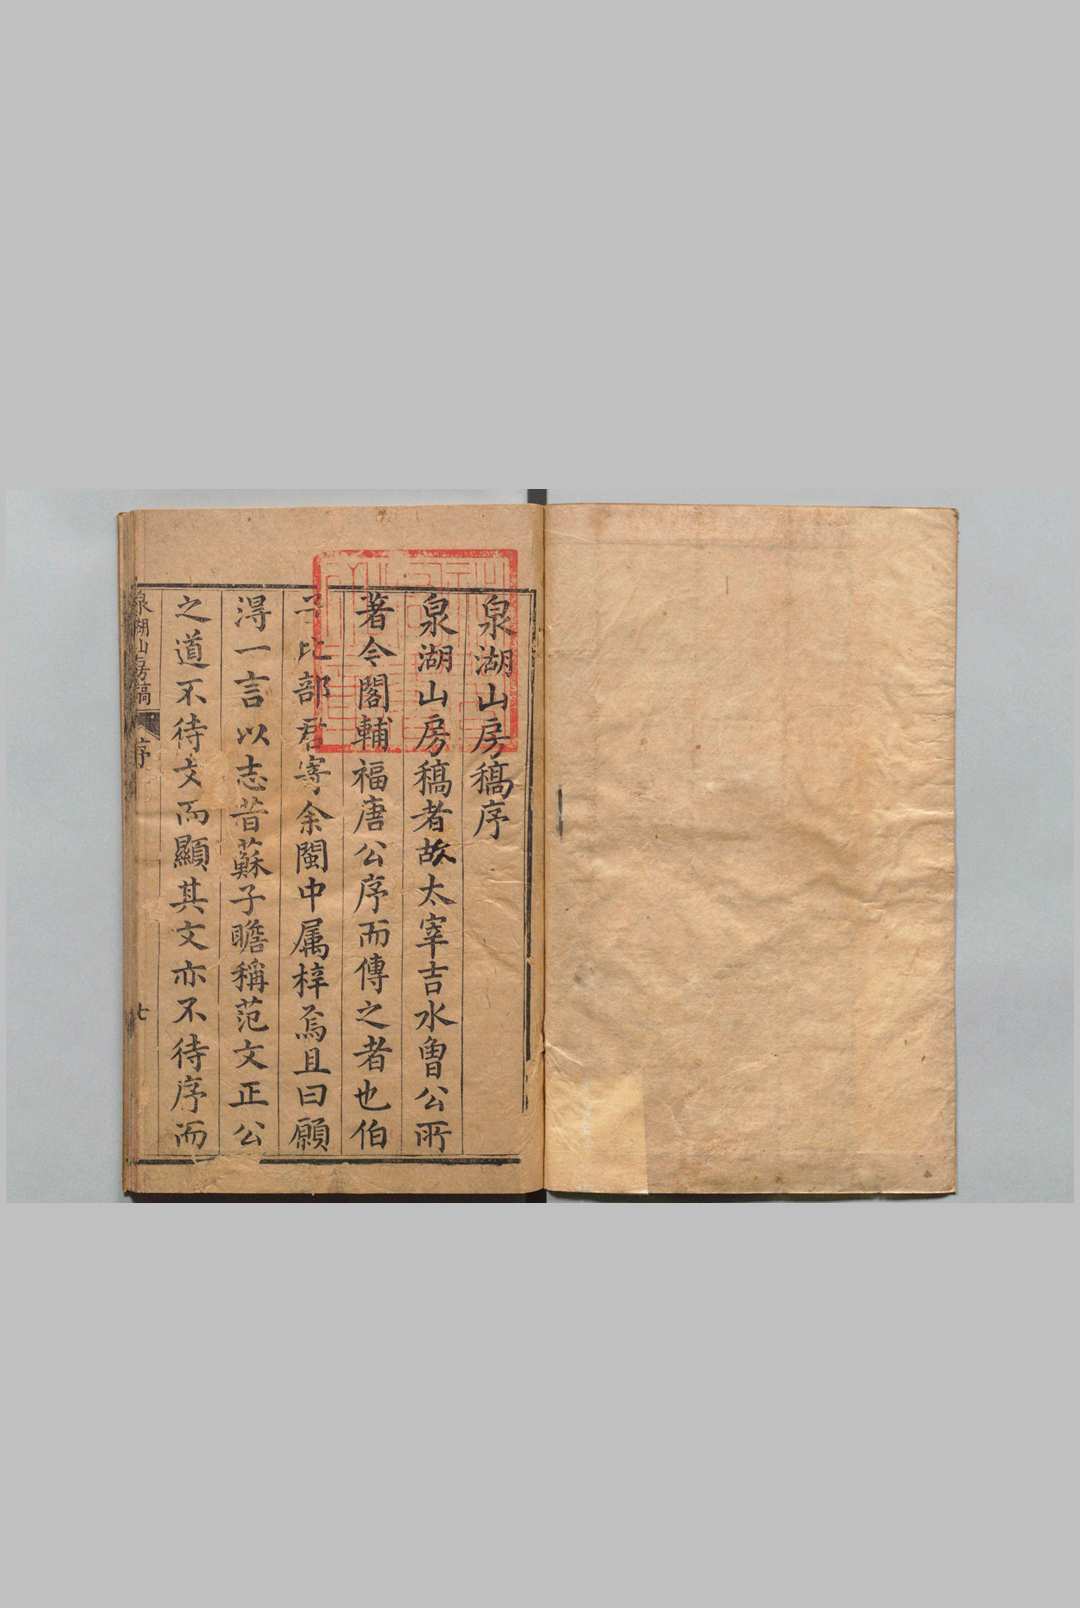 泉湖山房稿序
泉湖山房稿者故太宰吉水曽公所
著令閣輔福唐公序而傳之者也伯
子比部君寄余閩中属梓焉且曰願
淂一言以志昔蘇子瞻稱范文正公
之道不待文而顯其文亦不待序而
泉湖山房稿
序
七